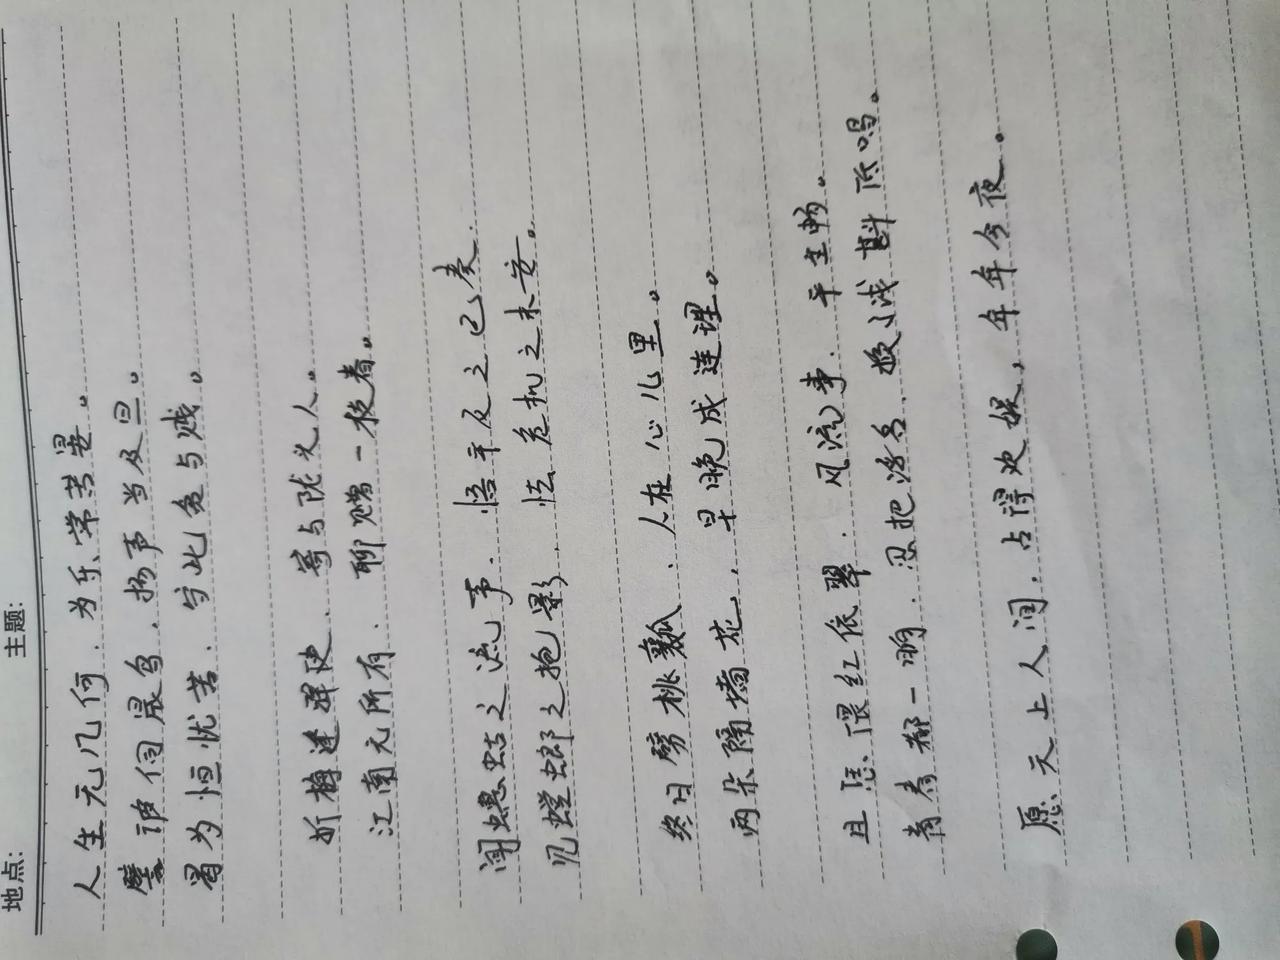 地点:
主题:
人生无几何,为乐常苦晏。
譬诸伺晨鸟,扬声当及旦。
曷为恒忧苦,守此贫与贱。
折梅逢驿使,寄与陇头人。
江南无所有,聊赠一枝春。
闻蟪蛄之流声,悟平反之已奏,
见螳螂之抱影,怯危机之未安。
终日劈桃瓤,人在心儿里。
两朵隔墙花,早晚成连理。
且恁偎红依翠,风流事,平生畅。
青春都一晌,忍把浮名,换了浅斟低唱。
愿天上人间,占得欢娱,年年今夜。